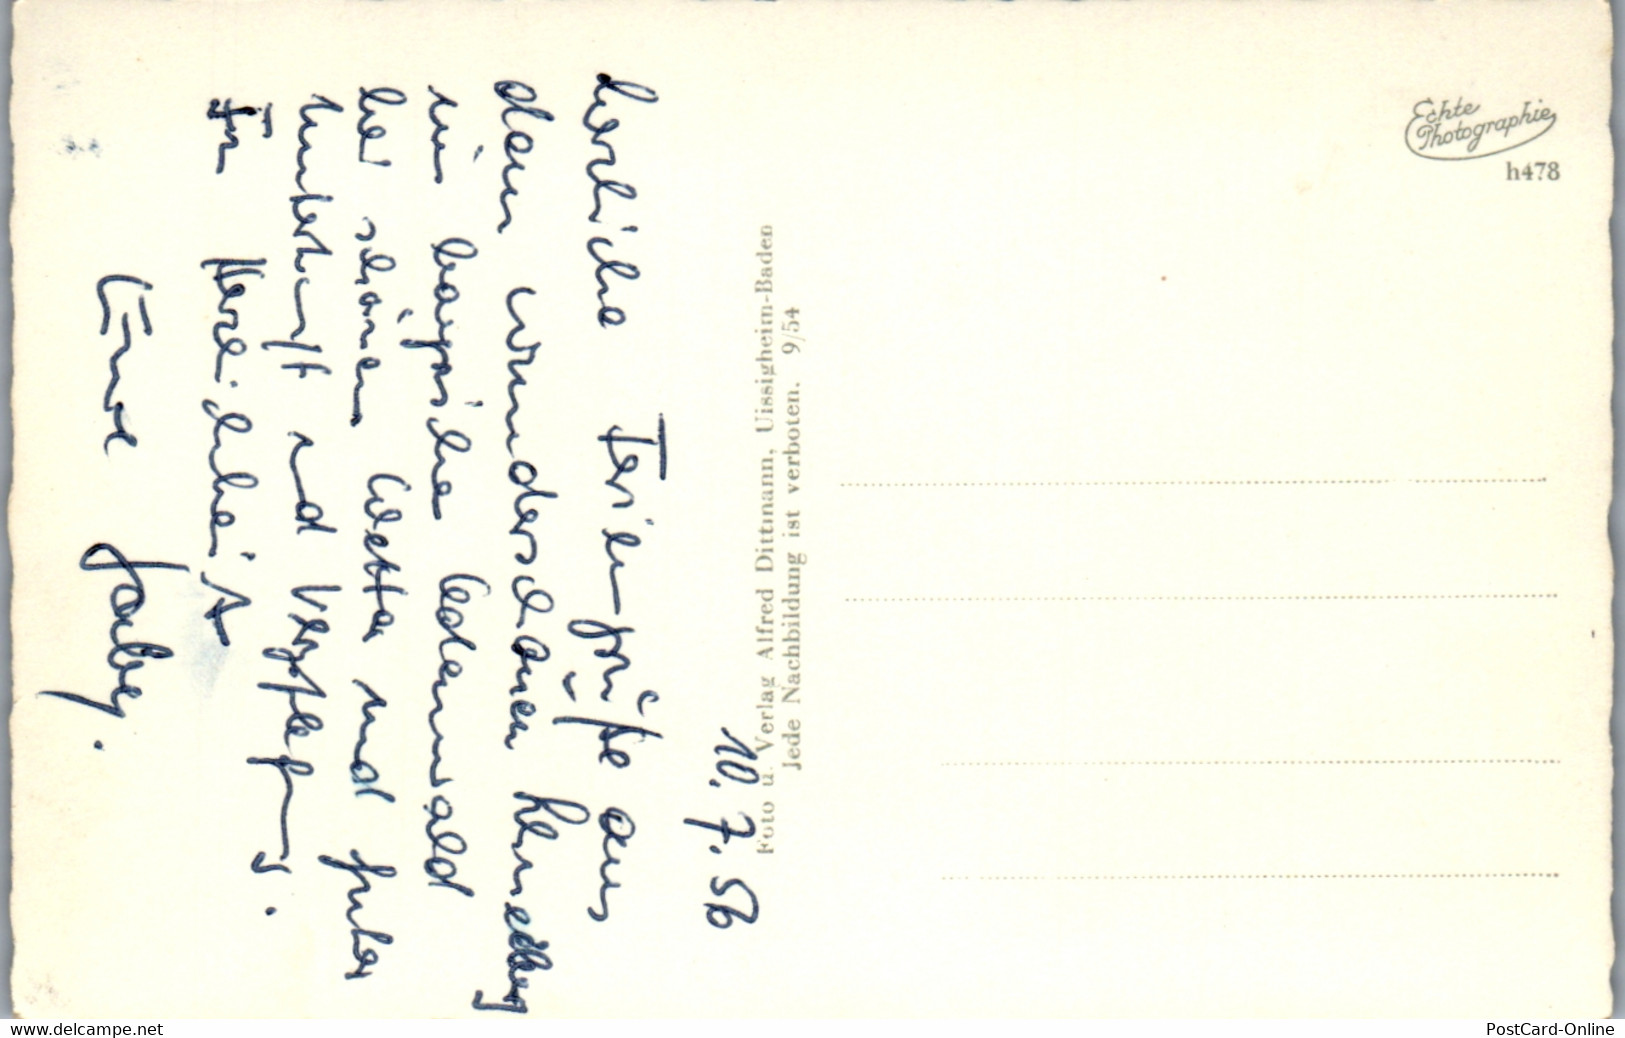 10. 7. 56
herzliche Feriengrüße aus
dem wunderschönen
im bayrischen Odenwald
bei schönem Wetter und guter
Unterkunft und Verpflegung.
In Herzlichkeit
Foto u. Verlag Alfred Dittmann, Uissigheim-Baden
Jede Nachbildung ist verboten. 9/54
Echte
Photographie
h478
www.delcampe.net
PostCard-Online